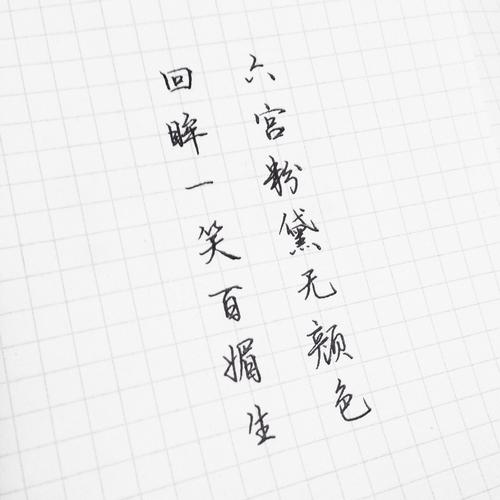 回眸一笑百媚生
六宫粉黛无颜色